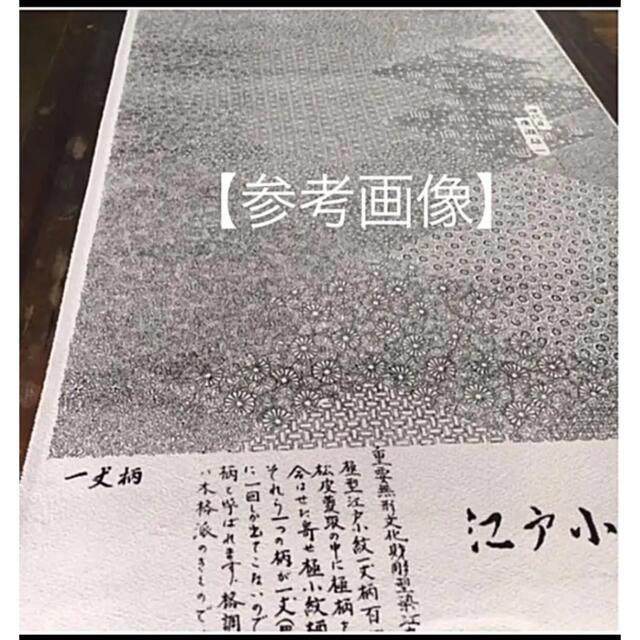 【参考画像】
一丈柄
江戸小
重要無形文化財彫型染江
極型江戸小紋一丈柄百
松皮菱取の中に極柄を
合はせた寄せ極小紋柄
それら一つの柄が一丈(四
に一回しか出てこないので
柄と呼ばれます。格調
い本格派のきもので